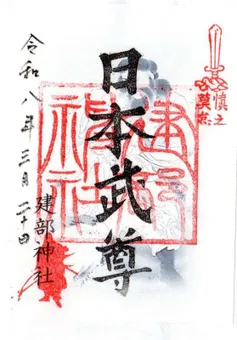 慎之
莫怠
日本武尊
建部
神社
令和八年三月二十四
建部神社